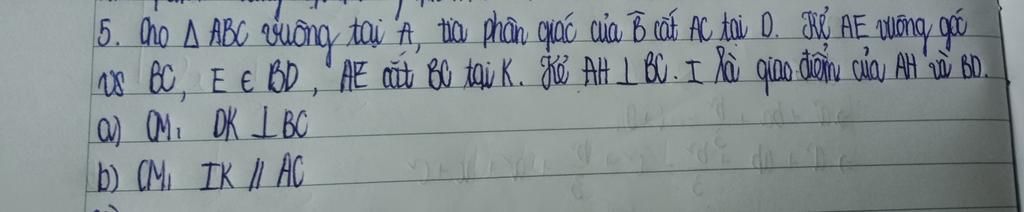 5. Cho Δ ABC vuông tại A, tia phân giác của B̂ cắt AC tại D. Kẻ AE vuông góc
vs BC, E ∈ BD, AE cắt BC tại K. Kẻ AH ⊥ BC. I là giao điểm của AH và BD.
a) CM, DK ⊥ BC
b) CM, IK // AC